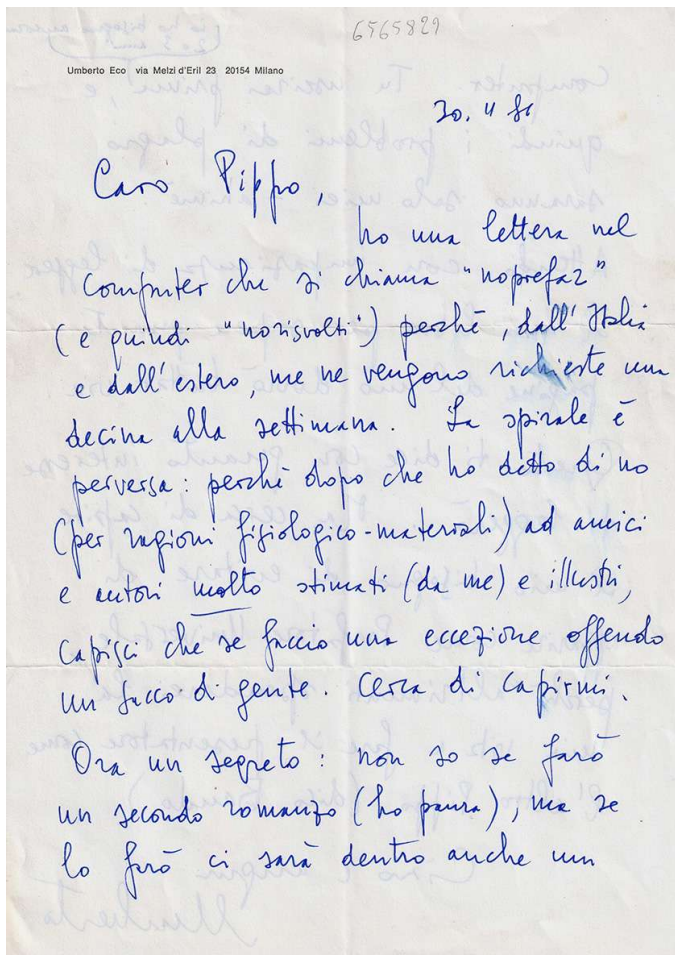 6565829
Umberto Eco via Melzi d'Eril 23 20154 Milano
30. 4 86
Caro Pippo,
ho una lettera nel
Computer che si chiama "noprefaz"
(e quindi "norisvolti") perché, dall'Italia
e dall'estero, me ne vengono richieste una
decina alla settimana. La spirale è
perversa: perché dopo che ho detto di no
(per ragioni fisiologico-materiali) ad amici
e autori molto stimati (da me) e illustri,
capisci che se faccio una eccezione offendo
un sacco di gente. Cerca di capirmi.
Ora un segreto: non so se farò
un secondo romanzo (ho paura), ma se
lo farò ci sarà dentro anche un